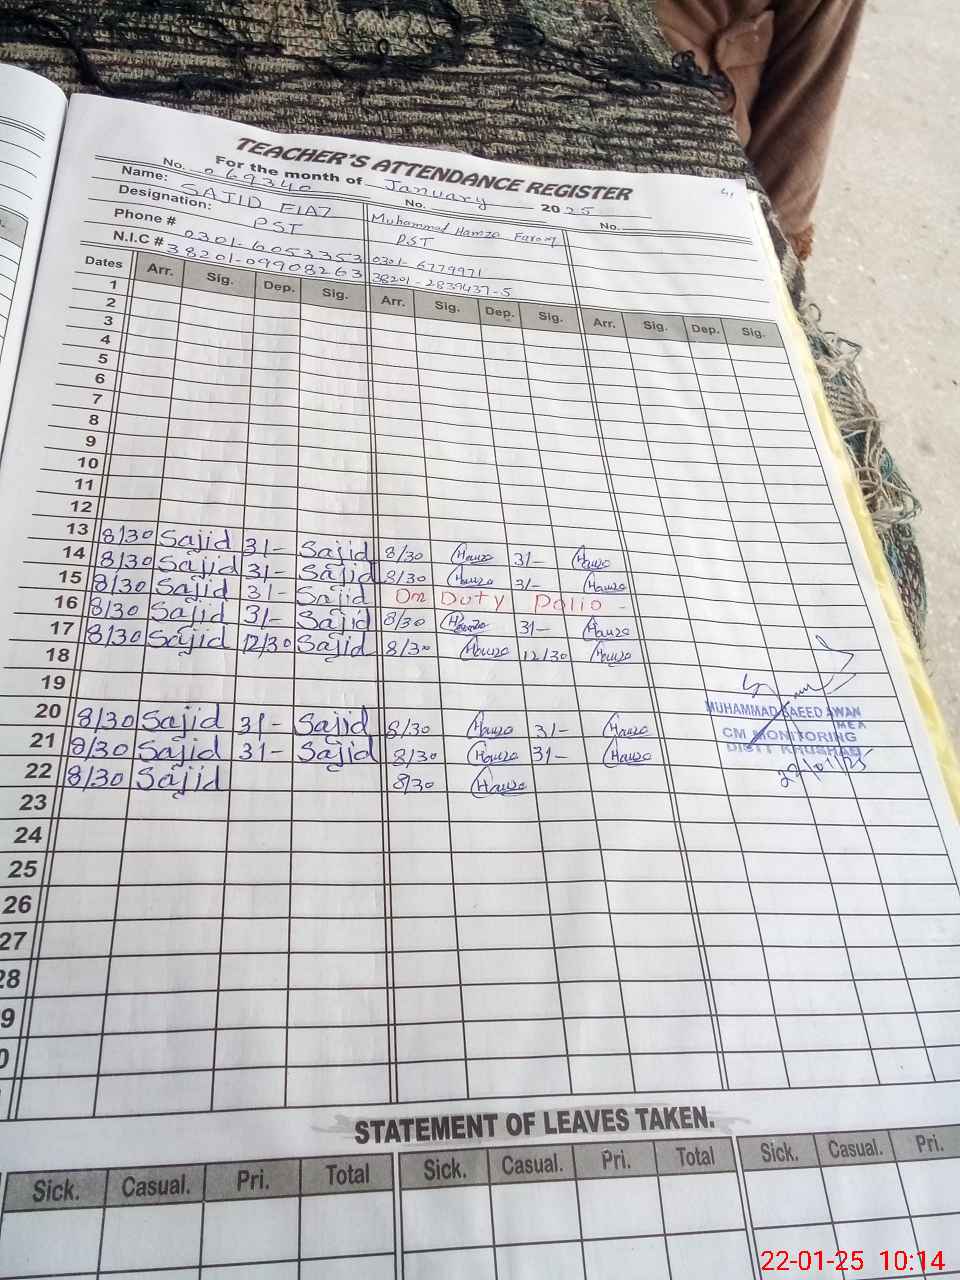 TEACHER'S ATTENDANCE REGISTER
For the month of January 2025
No. 069340 No. No.
Name: SAJID Muhammad Hamza Farooq
Designation: PST PST
Phone # 0301-6053353 0301-6779971
N.I.C # 38201-09908263 38201-2839437-5
Dates Arr. Sig. Dep. Sig. Arr. Sig. Dep. Sig. Arr. Sig. Dep. Sig.
1
2
3
4
5
6
7
8
9
10
11
12
13 8/30 Sajid 3/- Sajid 8/30 Hamza 3/- Hamza
14 8/30 Sajid 3/- Sajid 8/30 Hamza 3/- Hamza
15 8/30 Sajid 3/- Sajid On Duty Polio -
16 8/30 Sajid 3/- Sajid 8/30 Hamza 3/- Hamza
17 8/30 Sajid 12/30 Sajid 8/30 Hamza 12/30 Hamza
18
19
20 8/30 Sajid 3/- Sajid 8/30 Hamza 3/- Hamza
21 8/30 Sajid 3/- Sajid 8/30 Hamza 3/- Hamza
22 8/30 Sajid 8/30 Hamza
MUHAMMAD SAEED AWAN
MEA
CM MONITORING
DISTT KHUSHAB
22/01/25
23
24
25
26
27
28
9
0
STATEMENT OF LEAVES TAKEN.
Sick. Casual. Pri. Total Sick. Casual. Pri. Total Sick. Casual. Pri.
22-01-25 10:14